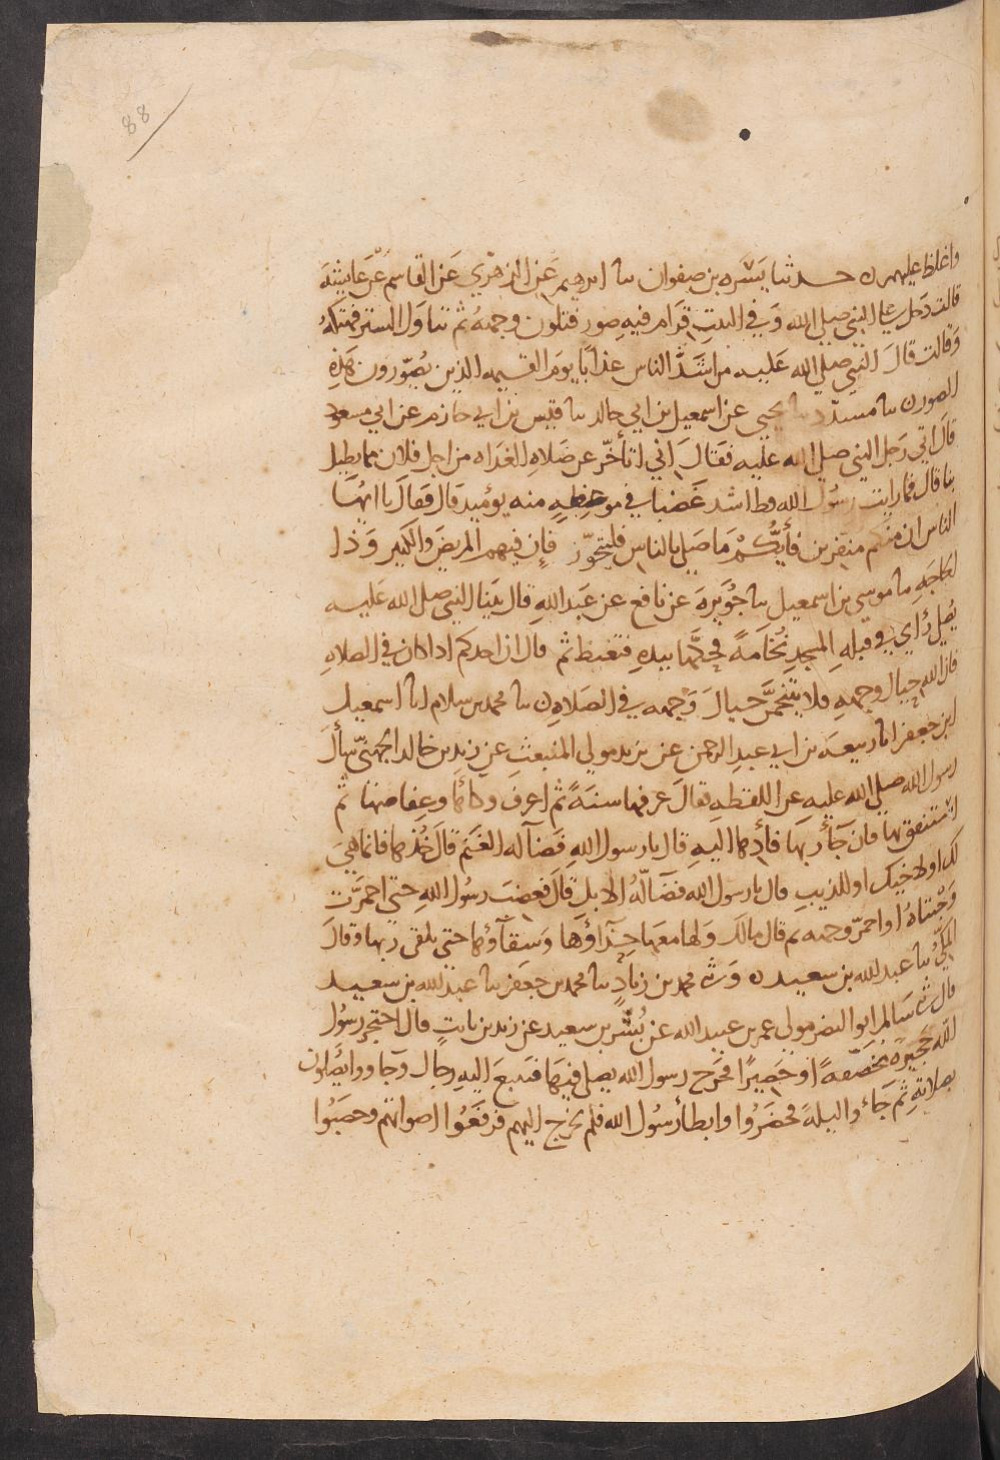 88
واغلظ عليهم ن حدثنا يَسَره بن صفوان سا ابرهيم عَن الزهري عَن القاسم عَن عايشَة
قالت دخل علي النبي صلي الله وَفي البيت قرام فيهِ صور فتلون وجههُ ثم تناوَل الستر فهتكهُ
وَقالت قالَ النبي صلي الله عَليه من اشدَّ الناس عذابًا يومَ القيمه الذين يُصَوّرون هَذِهِ
الصور ن سا مسدّد سا يحيي عن اسمعيل بن ابي خالد سا قيس بن ابي حازم عن ابي مسعود
قالَ اتي رَجل النبي صلي الله عليه فقالَ اني لاتأخّر عن صَلاهِ الغدَاه من اجل فلان مما يطيل
بنا قال فما رايت رسُول الله قط اشد غَضبا في موعظهٍ منه يومَيد قال فقالَ يا ايهَا
الناس ان منكم منفرين فأيكُّمْ مَا صَلي بالناس فليتجوّز فإن فيهم المريضَ والكبير وَذا
الحاجَهِ سا موسي بن اسمعيل سا جُوَيريَهَ عن نافع عن عَبد اللهِ قال بَينا النبي صلي الله عَليه
يُصَلي رُاي في قبلهِ المسجدِ نُخَامَةً فحكَّها بيدِهِ فتغيظ ثم قال ان احدكم اذا كان في الصلاهِ
فان الله حِيال وجههِ فلا يَتَنخمَنَّ حيالَ وَجهه في الصَلاهِ ن سا محمد بن سلام اسا اسمعيل
ابن جعفر اسا ربيعَه بن ابي عبدِ الرحمن عن يزيد مولي المنبعثِ عن زيد بن خالد الجهنيّ سألَ
رسول الله صلي الله عليه عن اللقطهِ فقالَ عرفها سنَةً ثم اعرف وكائها وعِفاصَها ثم
استنفق بها فان جَآء ربهَا فأدها اليهِ قال يا رسول اللهِ فضآلهِ الغَنَمِ قالَ خُذها فانما هيَ
لك او لاخيك او للذيبِ قال يا رسول الله فضَالّهُ الابلِ قالَ فغضبَ رسُول اللهِ حتي احمرّت
وَجْنتاهُ او احمرّ وجهه ثم قال مالكَ وَلها معهَا حِذَآؤها وسقآؤها حتى يلقى ربها وقالَ
المكيُّ سا عبدالله بن سعيد ن وَثني محمد بن زيادٍ سا محمد بن جعفر سا عبدالله بن سعيد
قال ثني سَالم ابو النضر مولي عمر بن عبيد الله عن بُسْر بن سعيد عن زيد بن ثابتٍ قال احتجر رسُول
الله حُجَيرهً مخصّفهً او حَصيرًا فخرج رسول الله يصلي فيها فتتبعَ اليهِ رجال وَجآووا يُصَلون
بصَلاتهِ ثم جَاءوا ليلةً فحضَرُوا وابطأ رسُول الله فلم يخرج اليهم فرفعَوا اصواتهم وحصَبُوا